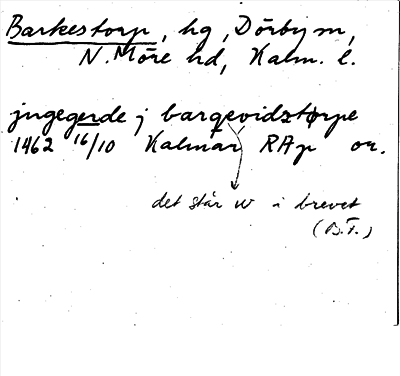 Barkestorp, hg, Dörby sn,
N. Möre hd, Kalm. l.
jngegerde j barqevidztorpe
1462 16/10 Kalmar RAp or.
det står w i brevet
(B.T.)